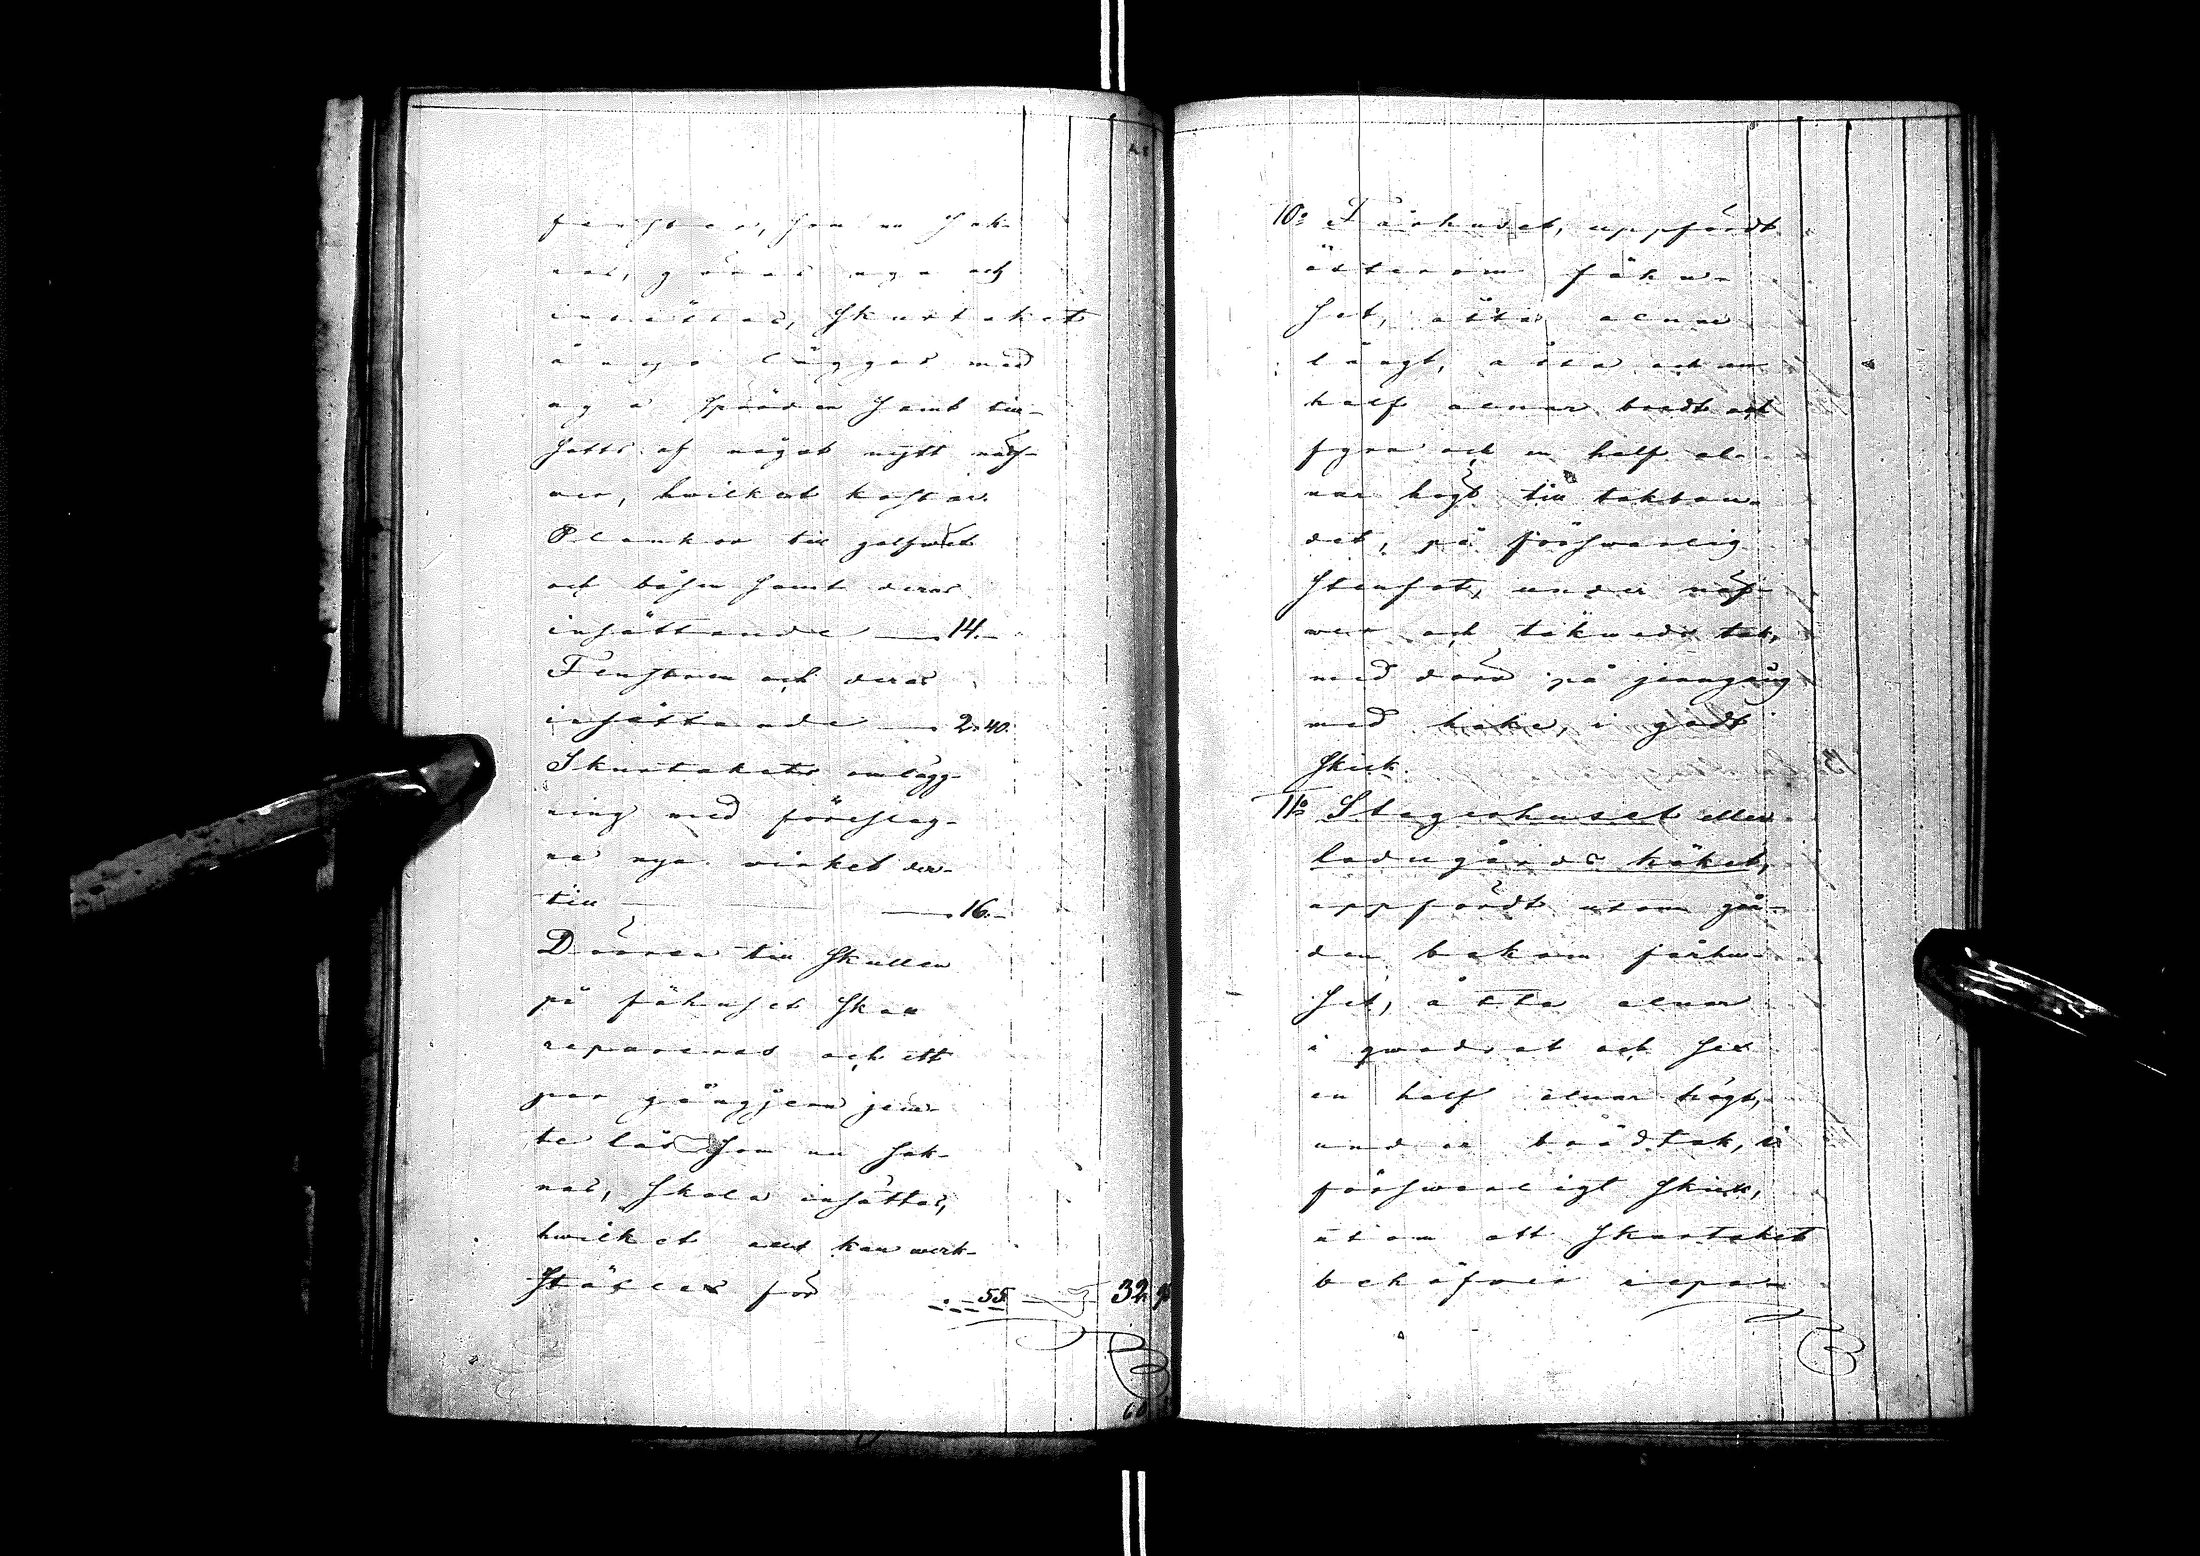 fenster, som nu sak-
nas, göras nya och
insättas, Skurtaket
å nyo lägges med
nya bräden samt till-
satts af något nytt näf-
wer, hwilket kostar.
Plankor till golfwet
och båsen samt deras
insättande — 14.—
Fenstren och deras
insättande — 2.40.
Skurtakets omlägg-
ning med föreslag-
na nya wirket der-
till — 16.—
Dörren till Skullen
på fähuset Skall
repareras och ett
par gångjern jem-
te lås som nu sak-
nas, Skola insättas,
hwilket allt kan werk-
ställas för . — 55 — 32.95
10:o Fårhuset, uppfördt
österom fähu-
set, åtta alnar
långt, åtta och en
half alnar bredt och
fyra och en half al-
nar högt till takban-
det, på förswarlig
Stenfot, under näf-
wer och takweds tak,
med dörr på jerngång
med hake, i godt
Skick.
11:o Slagerhuset eller
ladugårds köket,
uppfördt utom går-
den bakom fårhu-
set, åtta alnar
i qwadrat och sex
en half alnar högt,
under brädtak, i
förswarligt Skick,
utom att Skurtaket
behöfwer repar-